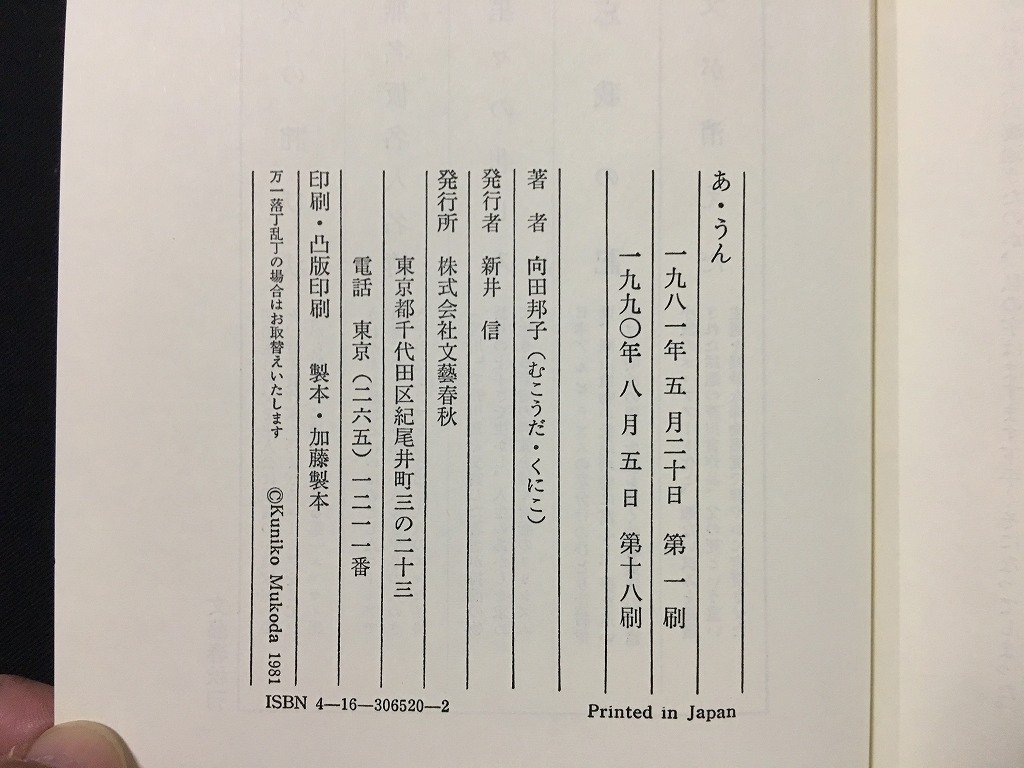 あ・うん
一九八一年 五 月二十日 第 一 刷
一九九〇年 八 月 五 日 第十八刷
著 者 向田邦子（むこうだ・くにこ）
発行者 新井 信
発行所 株式会社文藝春秋
東京都千代田区紀尾井町三の二十三
電話 東京（二六五）一二一一番
印刷・凸版印刷 製本・加藤製本
万一落丁乱丁の場合はお取替えいたします ©Kuniko Mukoda 1981
ISBN 4―16―306520―2
Printed in Japan